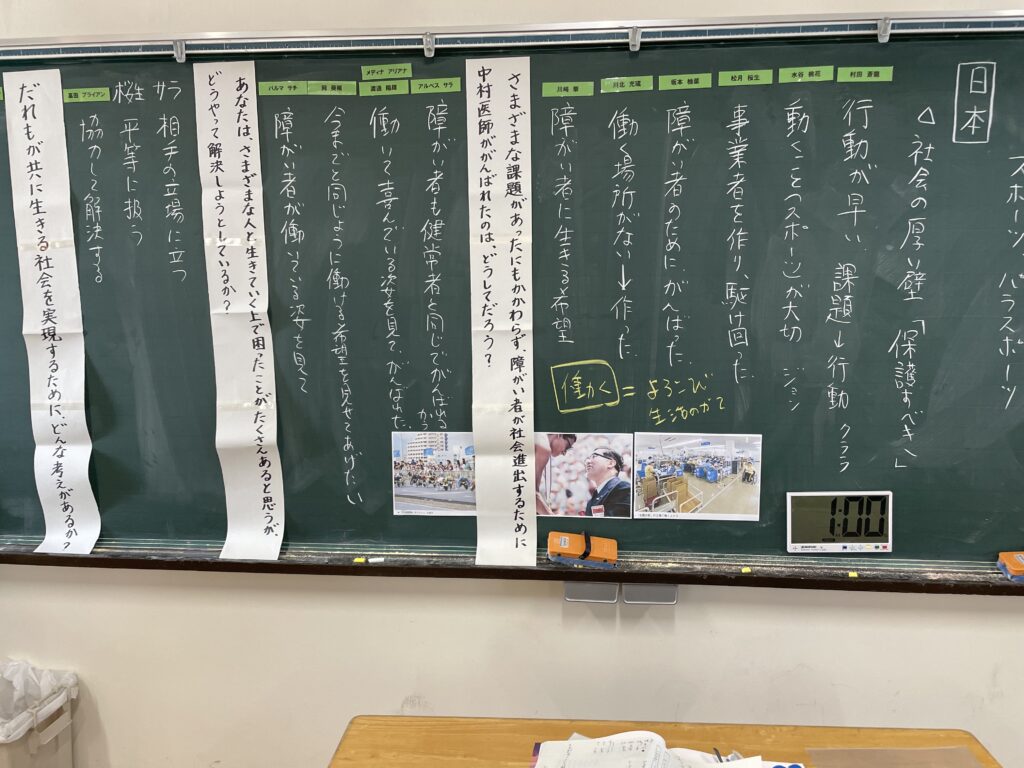 スポーツ パラスポーツ
日本
△社会の厚い壁「保護すべき」
村田 蒼龍
行動が早い 課題→行動 クララ
水谷 桃花
動くこと(スポーツ)が大切 ジョミン
松月 桜生
事業者を作り駆け回った
坂本 柚葉
障がい者のために、がんばった
川北 充瑞
働く場所がない→作った
川﨑
障がい者に生きる希望
働く=よろこび
生活のかて
さまざまな課題があったにもかかわらず、障がい者が社会進出するために
中村医師ががんばれたのは、どうしてだろう?
アルベス サラ
障がい者も健常者と同じでがんばれる
から
メディナ アリアナ
渡邉
働いて喜んでいる姿を見て、がんばれた
今までと同じように働ける希望を見せてあげたい
パルマ サチ
障がい者が働いている姿を見て
あなたは、さまざまな人と生きていく上で困ったことがたくさんあると思うが、
どうやって解決しようとしているか?
サラ 相手の立場に立つ
桜生 平等に扱う
冨田 ブライアン
協力して解決する
だれもが共に生きる社会を実現するために、どんな考えがあるか?
1:00